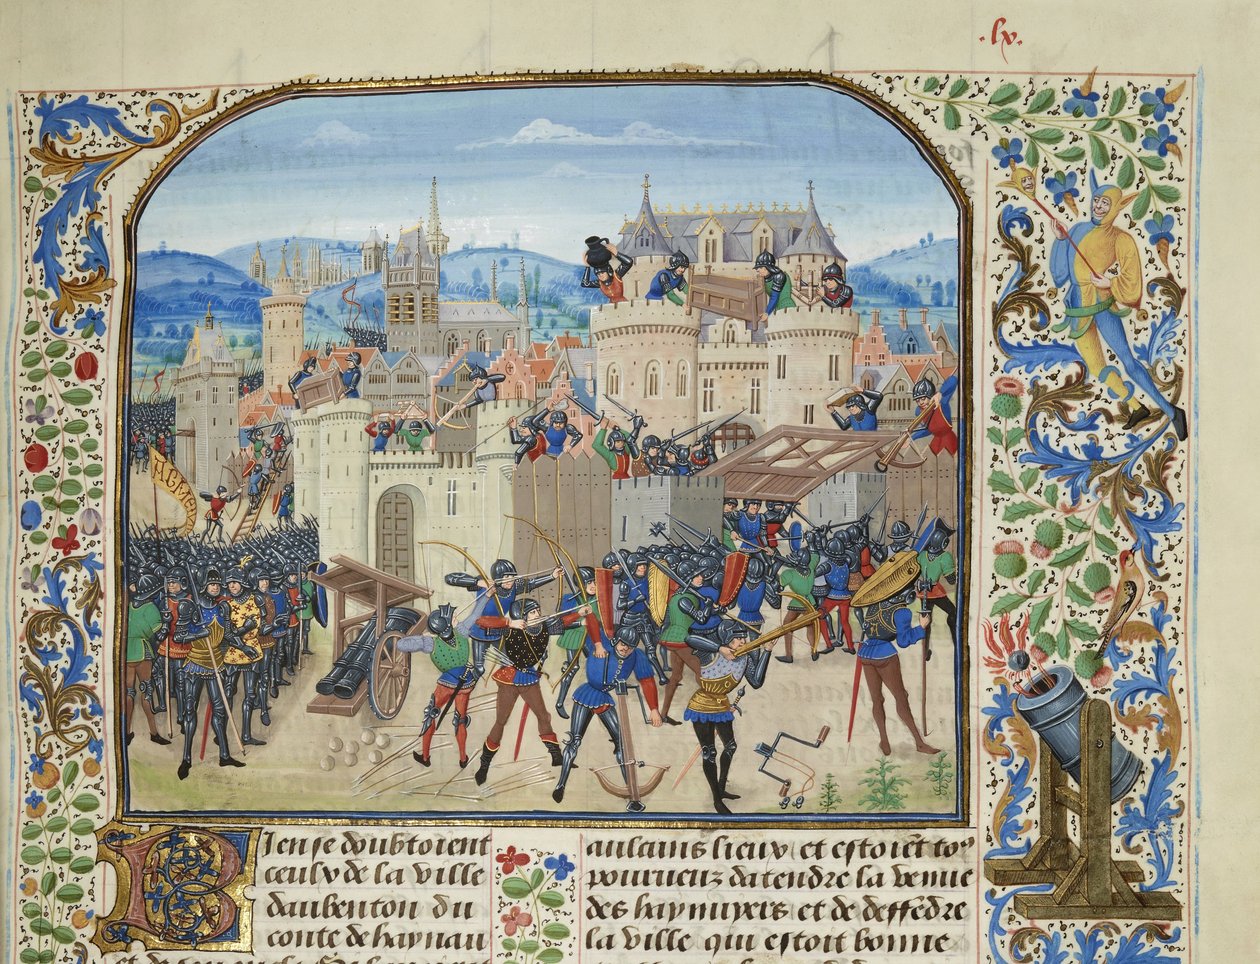 .lx.
Bien se doubtoient
ceulx de la ville
daubenton du
conte de haynau
aulcuns lieux et estoiēt toꝰ
pourueuz datendre la venue
des haynuyers et de deffēdre
la ville qui estoit bonne